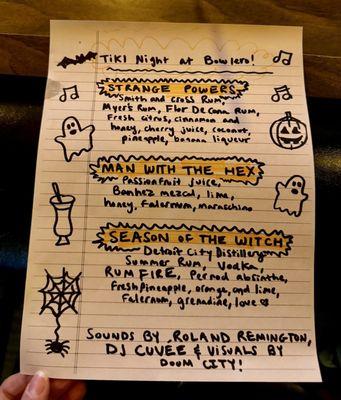 Tiki Night at Bowlero!
STRANGE POWERS
Smith and Cross Rum,
Myer's Rum, Flor De Cana Rum,
Fresh citrus, cinnamon and
honey, cherry juice, coconut,
pineapple, banana liqueur
MAN WITH THE HEX
Passionfruit juice,
Banhez mezcal, lime,
honey, Falernum, maraschino
SEASON OF THE WITCH
Detroit City Distillery
Summer Rum, Vodka,
RUMFIRE, Pernod absinthe,
fresh pineapple, orange, and lime,
Falernum, grenadine, love
SOUNDS BY ROLAND REMINGTON,
DJ CUVEE & VISUALS BY
DOOM CITY!